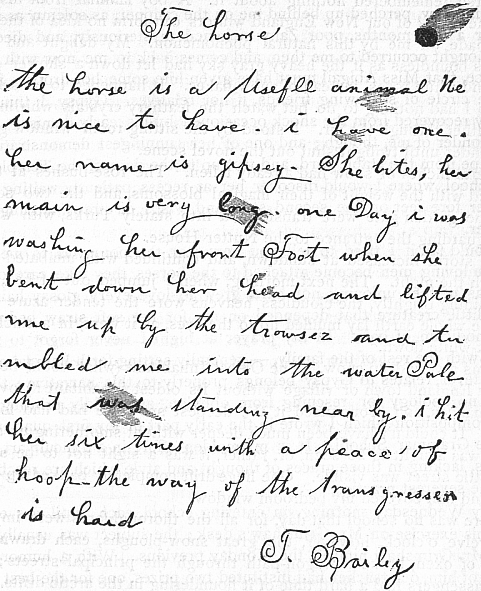 The horse
the horse is a Usefle animal He
is nice to have. i have one.
her name is gipsey. She bites, her
main is very long. one Day i was
washing her front Foot when she
bent down her head and lifted
me up by the trowsez and tu
mbled me into the water Pale
that was standing near by. i hit
her six times with a peace of
hoop-the way of the transgresser
is hard
T. Bailey